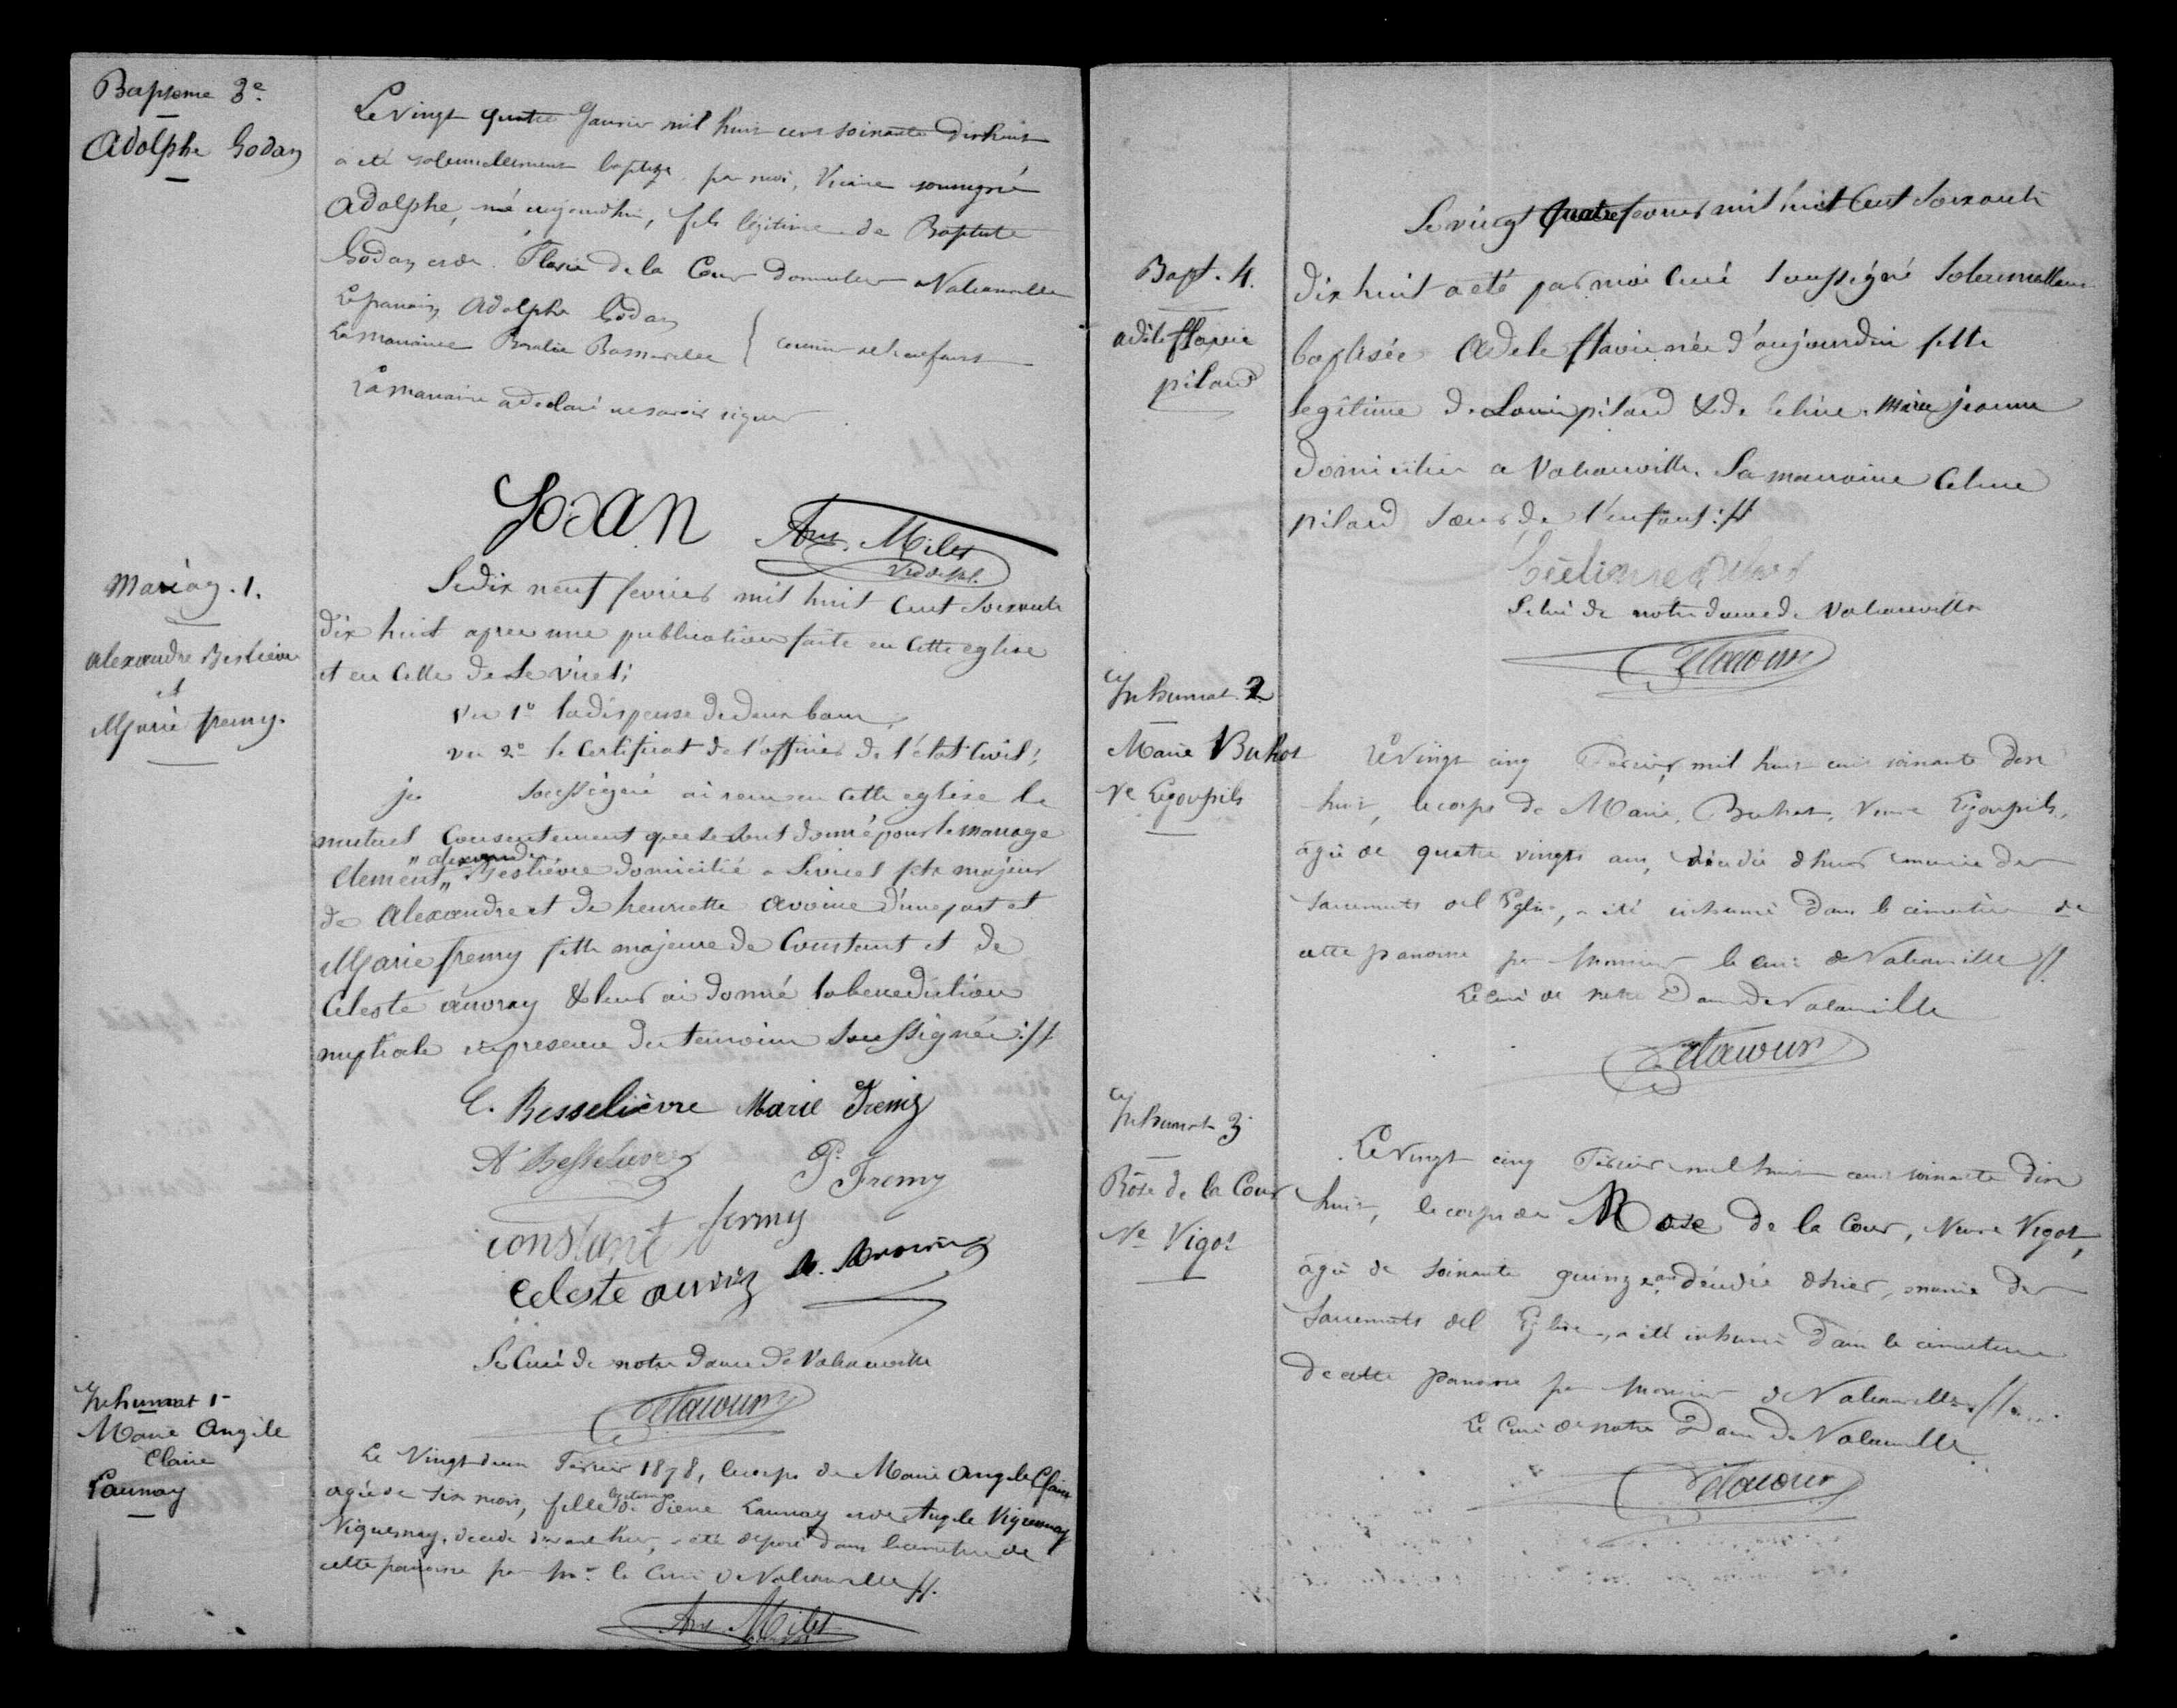 Baptsme 3e
Adolphe Godan
Le vingt quatre Janvier mil huit cent soixante dix huit
a été solennellement baptizé par moi, Vicaire soussigné
Adolphe, né aujourdhui, fils légitime de Baptiste
Godan et de Flavie de la Cour domicilier a Valcanville
Le parrain Adolphe Godan
La marraine
La marraine a déclaré ne savoir signer
Godan
Aug. Miles
Mariag. 1.
Alexandre Beslièvre
et
Marie fremy.
Le dix neuf fevrier mil huit Cent Soixante
dix huit apres une publication faite en Cette eglise
et en Celle de Le vicel;
vu 1o la dispense de deux bans;
vu 2o le Certificat de l'officier de l'état Civil;
je soussigné ai recu en Cette eglise le
mutuel Consentement que se sont donné pour le mariage
alexandre
Clement Beslièvre domicilié a Levicel fils majeur
de Alexandre et de henriette avoine d'une part et
Marie fremy fille majeure de Constant et de
Celeste auvray & leur ai donné la benediction
nuptiale en presence des temoins Soussignés://
C. Besselièvre Marie Fremy
A Besselievre
P. Fremy
constant fermy
Celeste
Le Curé de notre dame de Valcanville
Inhumat 1
Marie Angèle
Claire
Launay
Le Vingt deux Février 1878, le corps de Marie Angele Claire
agée de six mois, fille légitime de Pierre Launay et de Angele Viguesnay
Viguesnay, décédé devant hier, a été déposé dans le cimetiere de
cette paroisse par Mr. le Curé de Valcanville //.
Aug. Miles
Bapt. 4.
adele flavie
pilard
Le vingt quatre fevrier mil huit Cent Soixante
dix huit a été par moi Curé soussigné Solennellement
baptisée Adele flavie née d'aujourdui fille
legîtime de Louis pilard & de Celine Marie jeanne
domicilier a Valcanville. Sa marraine Celine
pilard Sœur de l'enfant://
Le Curé de notre dame de Valcanville
Inhumat. 2
Marie Buhot
Ve Egoupils
Le Vingt cinq Février mil huit cent soixante dix
huit, le corps de Marie, Buhot, Veuve Egoupils,
agée de quatre vingts ans, décédée d'hier munie des
Sacrements de l'Eglise, a été inhumé dans le cimetière de
cette paroisse par Monsieur le curé de Valcanville //.
Le curé de notre Dame de Valcanville
Inhumat 3
Rose de la Cour
Ve Vigot
Le Vingt cinq Février mil huit cent soixante dix
huit, le corps de Rose de la Cour, Veuve Vigot,
agée de soixante quinze ans décédée d'hier, munie des
Sacrements de l'Eglise, a été inhumé dans le cimetiere
de cette paroisse par Monsieur de Valcanville. //
Le Curé de notre Dame de Valcanville